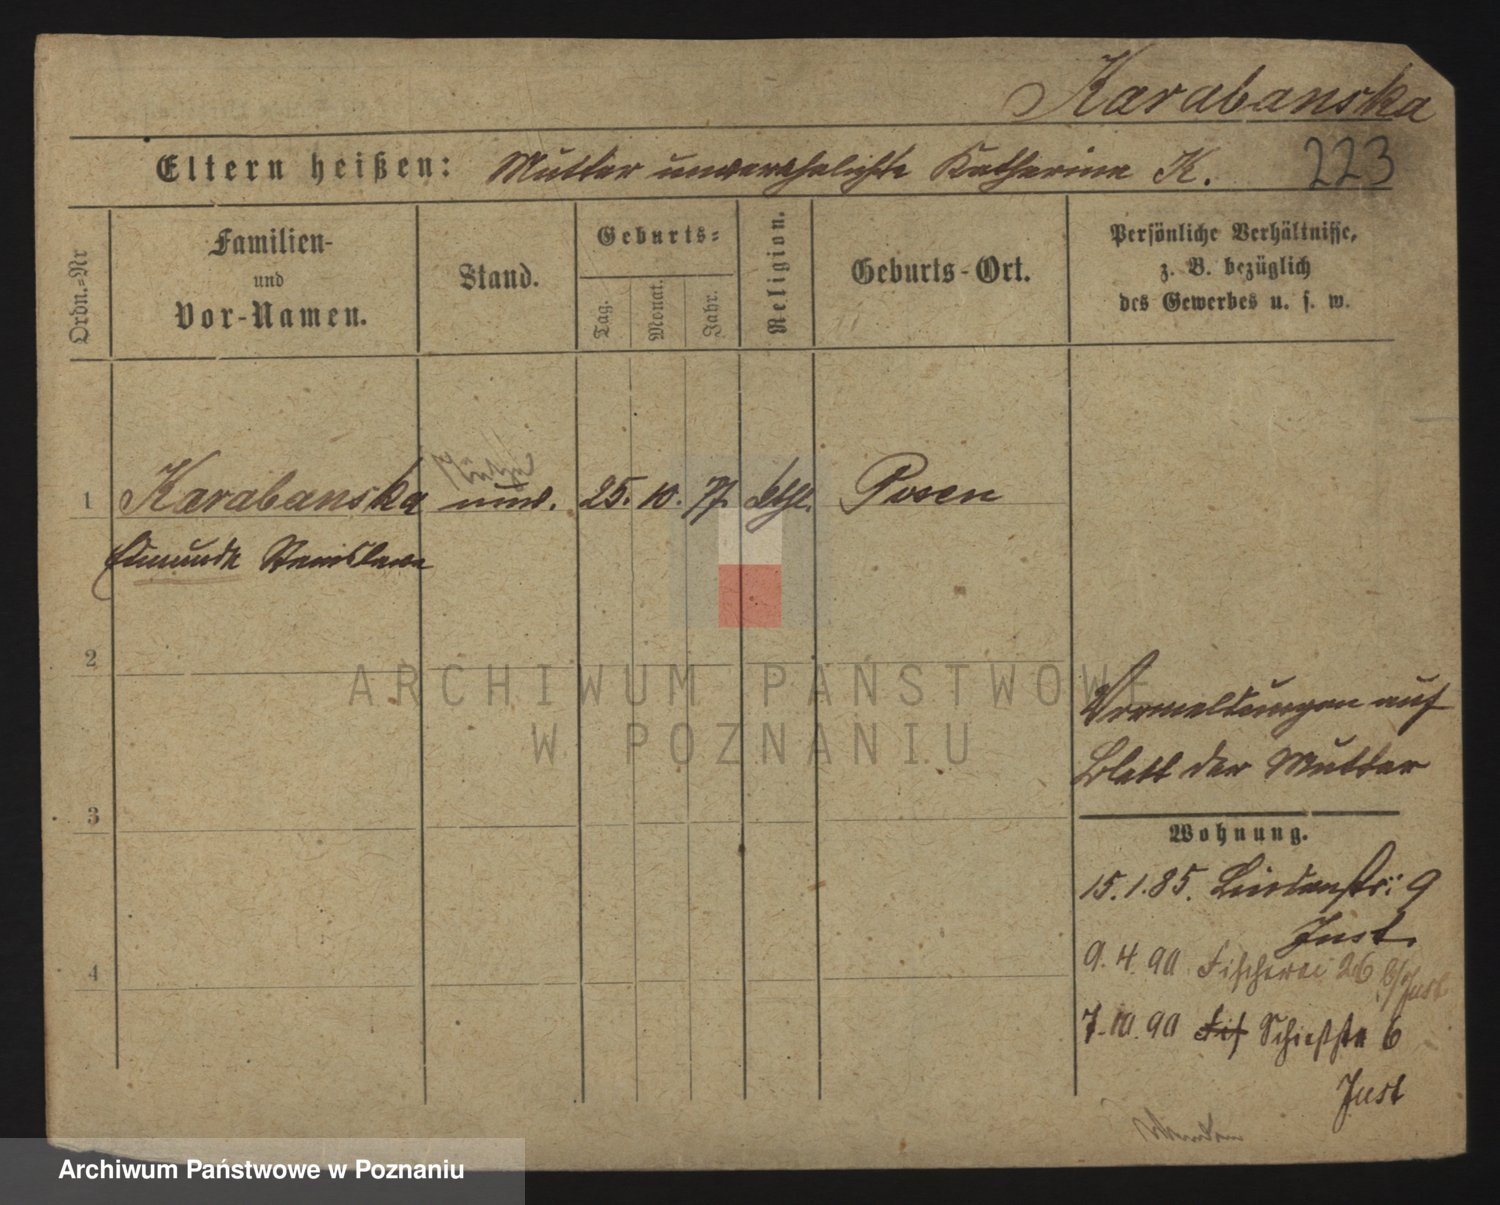 Karabanska
Eltern heißen: Mutter unverehelichte Katharina K. 223
Ordn.-Nr
Familien-
und
Vor-Namen.
Stand.
Geburts-
Tag.
Monat.
Jahr.
Religion.
Geburts-Ort.
Persönliche Verhältnisse,
z. B. bezüglich
des Gewerbes u. s. w.
1 Karabanska unv. 25. 10. 77. kthl. Posen
Edmunda Stanislawa
2
3
4
ARCHIWUM PAŃSTWOWE
W POZNANIU
Vermeldungen auf
Blatt der Mutter
Wohnung.
15.1.85. Lindenstr: 9
Just.
9.4.90 Fischerei 26 b/Just
7.10.90 Fis Schießstr 6
Just
Archiwum Państwowe w Poznaniu